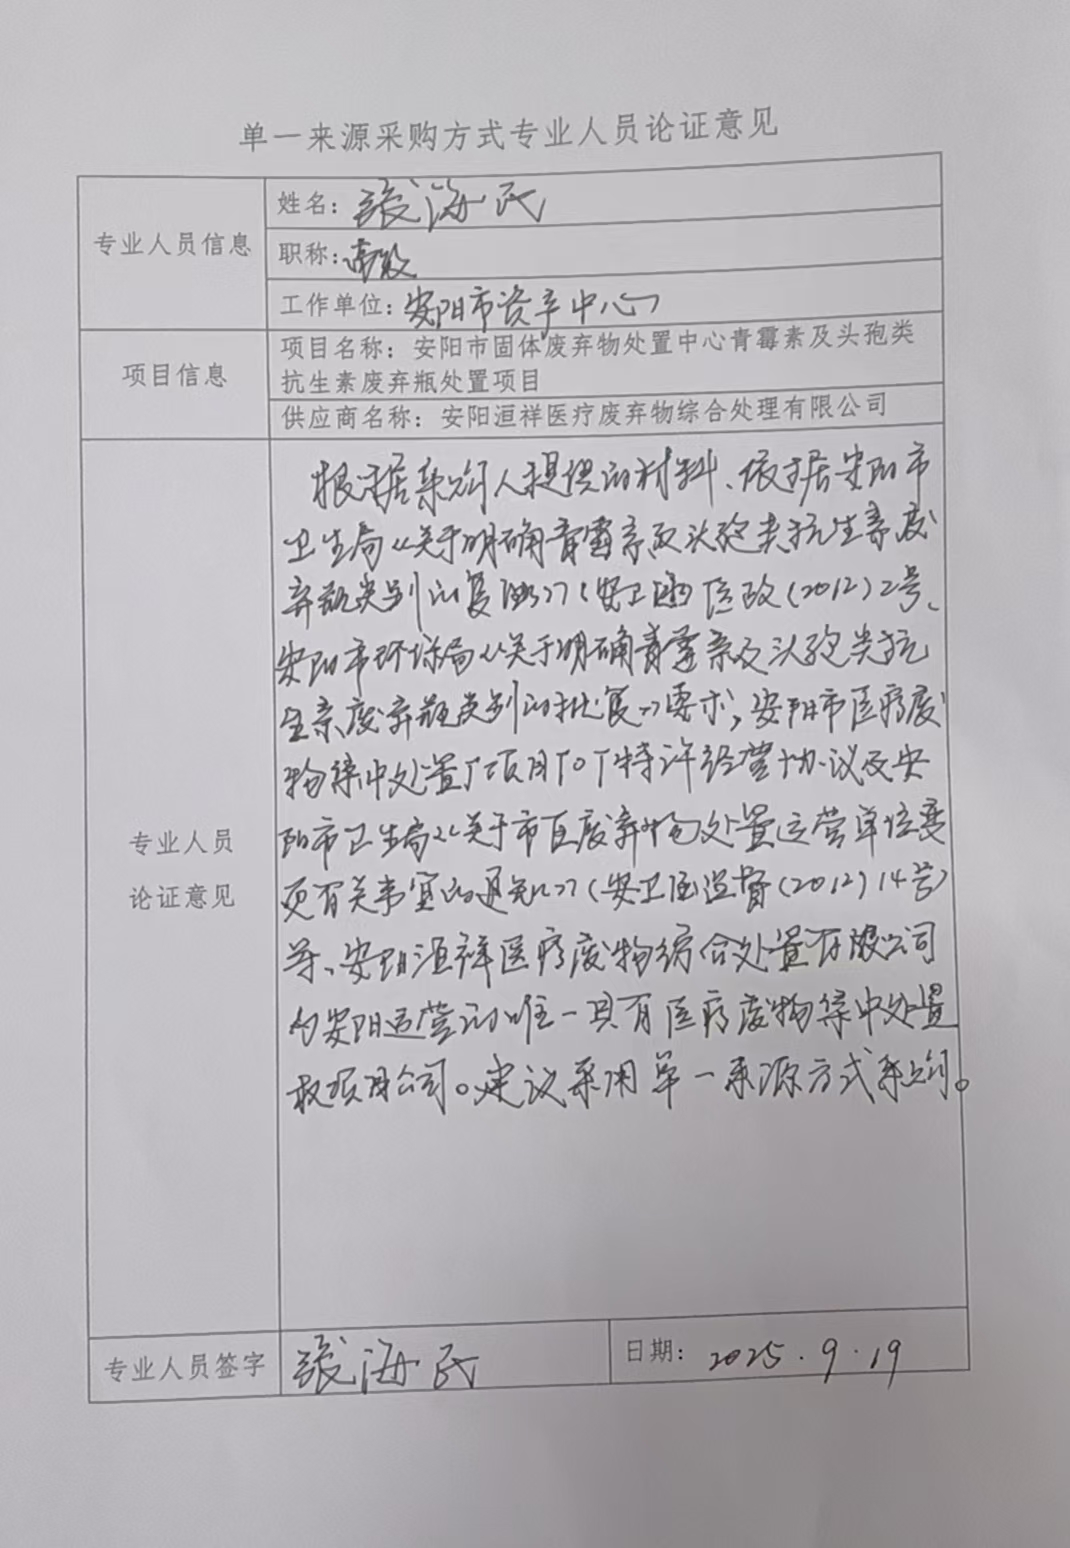 单一来源采购方式专业人员论证意见
专业人员信息
姓名：张海民
职称：高级
工作单位：安阳市资产中心
项目信息
项目名称：安阳市固体废弃物处置中心青霉素及头孢类
抗生素废弃瓶处置项目
供应商名称：安阳洹祥医疗废弃物综合处理有限公司
专业人员
论证意见
根据采购人提供的材料、依据安阳市
卫生局《关于明确青霉素及头孢类抗生素废
弃瓶类别的复函》（安卫函医政（2012）2号、
安阳市环保局《关于明确青霉素及头孢类抗
生素废弃瓶类别的批复》要求，安阳市医疗废
物集中处置厂项目TOT特许经营协议及安
阳市卫生局《关于市医废弃物处置运营单位变
更有关事宜的通知》（安卫医监督（2012）14号）
等、安阳洹祥医疗废物综合处置有限公司
为安阳运营的唯一具有医疗废物集中处置
权项目公司。建议采用单一来源方式采购。
专业人员签字
张海民
日期：2025.9.19